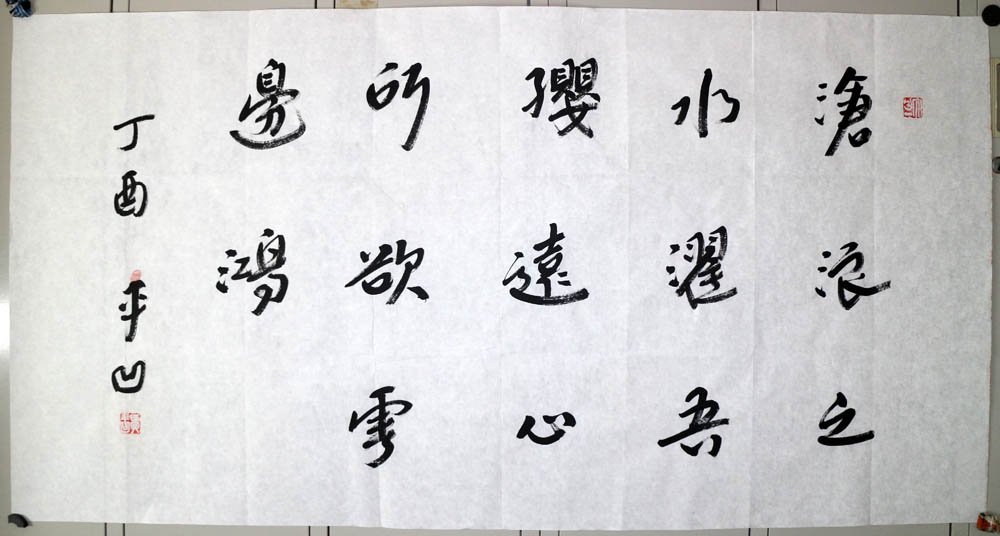 滄浪之
水濯吾
纓遠心
所欲雲
邊鴻
丁酉 平凹